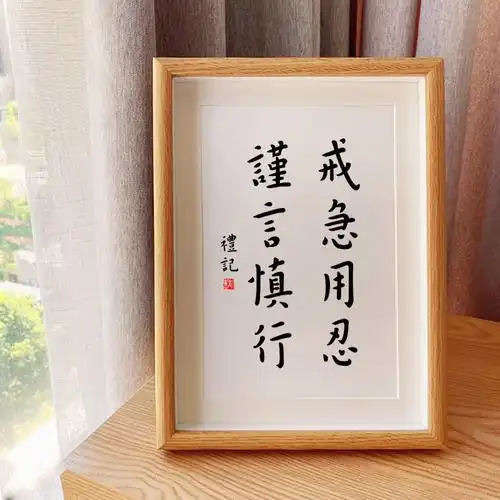 戒急用忍
謹言慎行
禮記